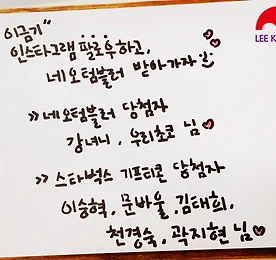 이금기"
인스타그램 팔로우하고,
네오텀블러 받아가자
LEE K
>> 네오텀블러 당첨자
강녀니, 우리초코 님
>> 스타벅스 기프티콘 당첨자
이승혁, 문바울, 김태희,
천경숙, 곽지현 님